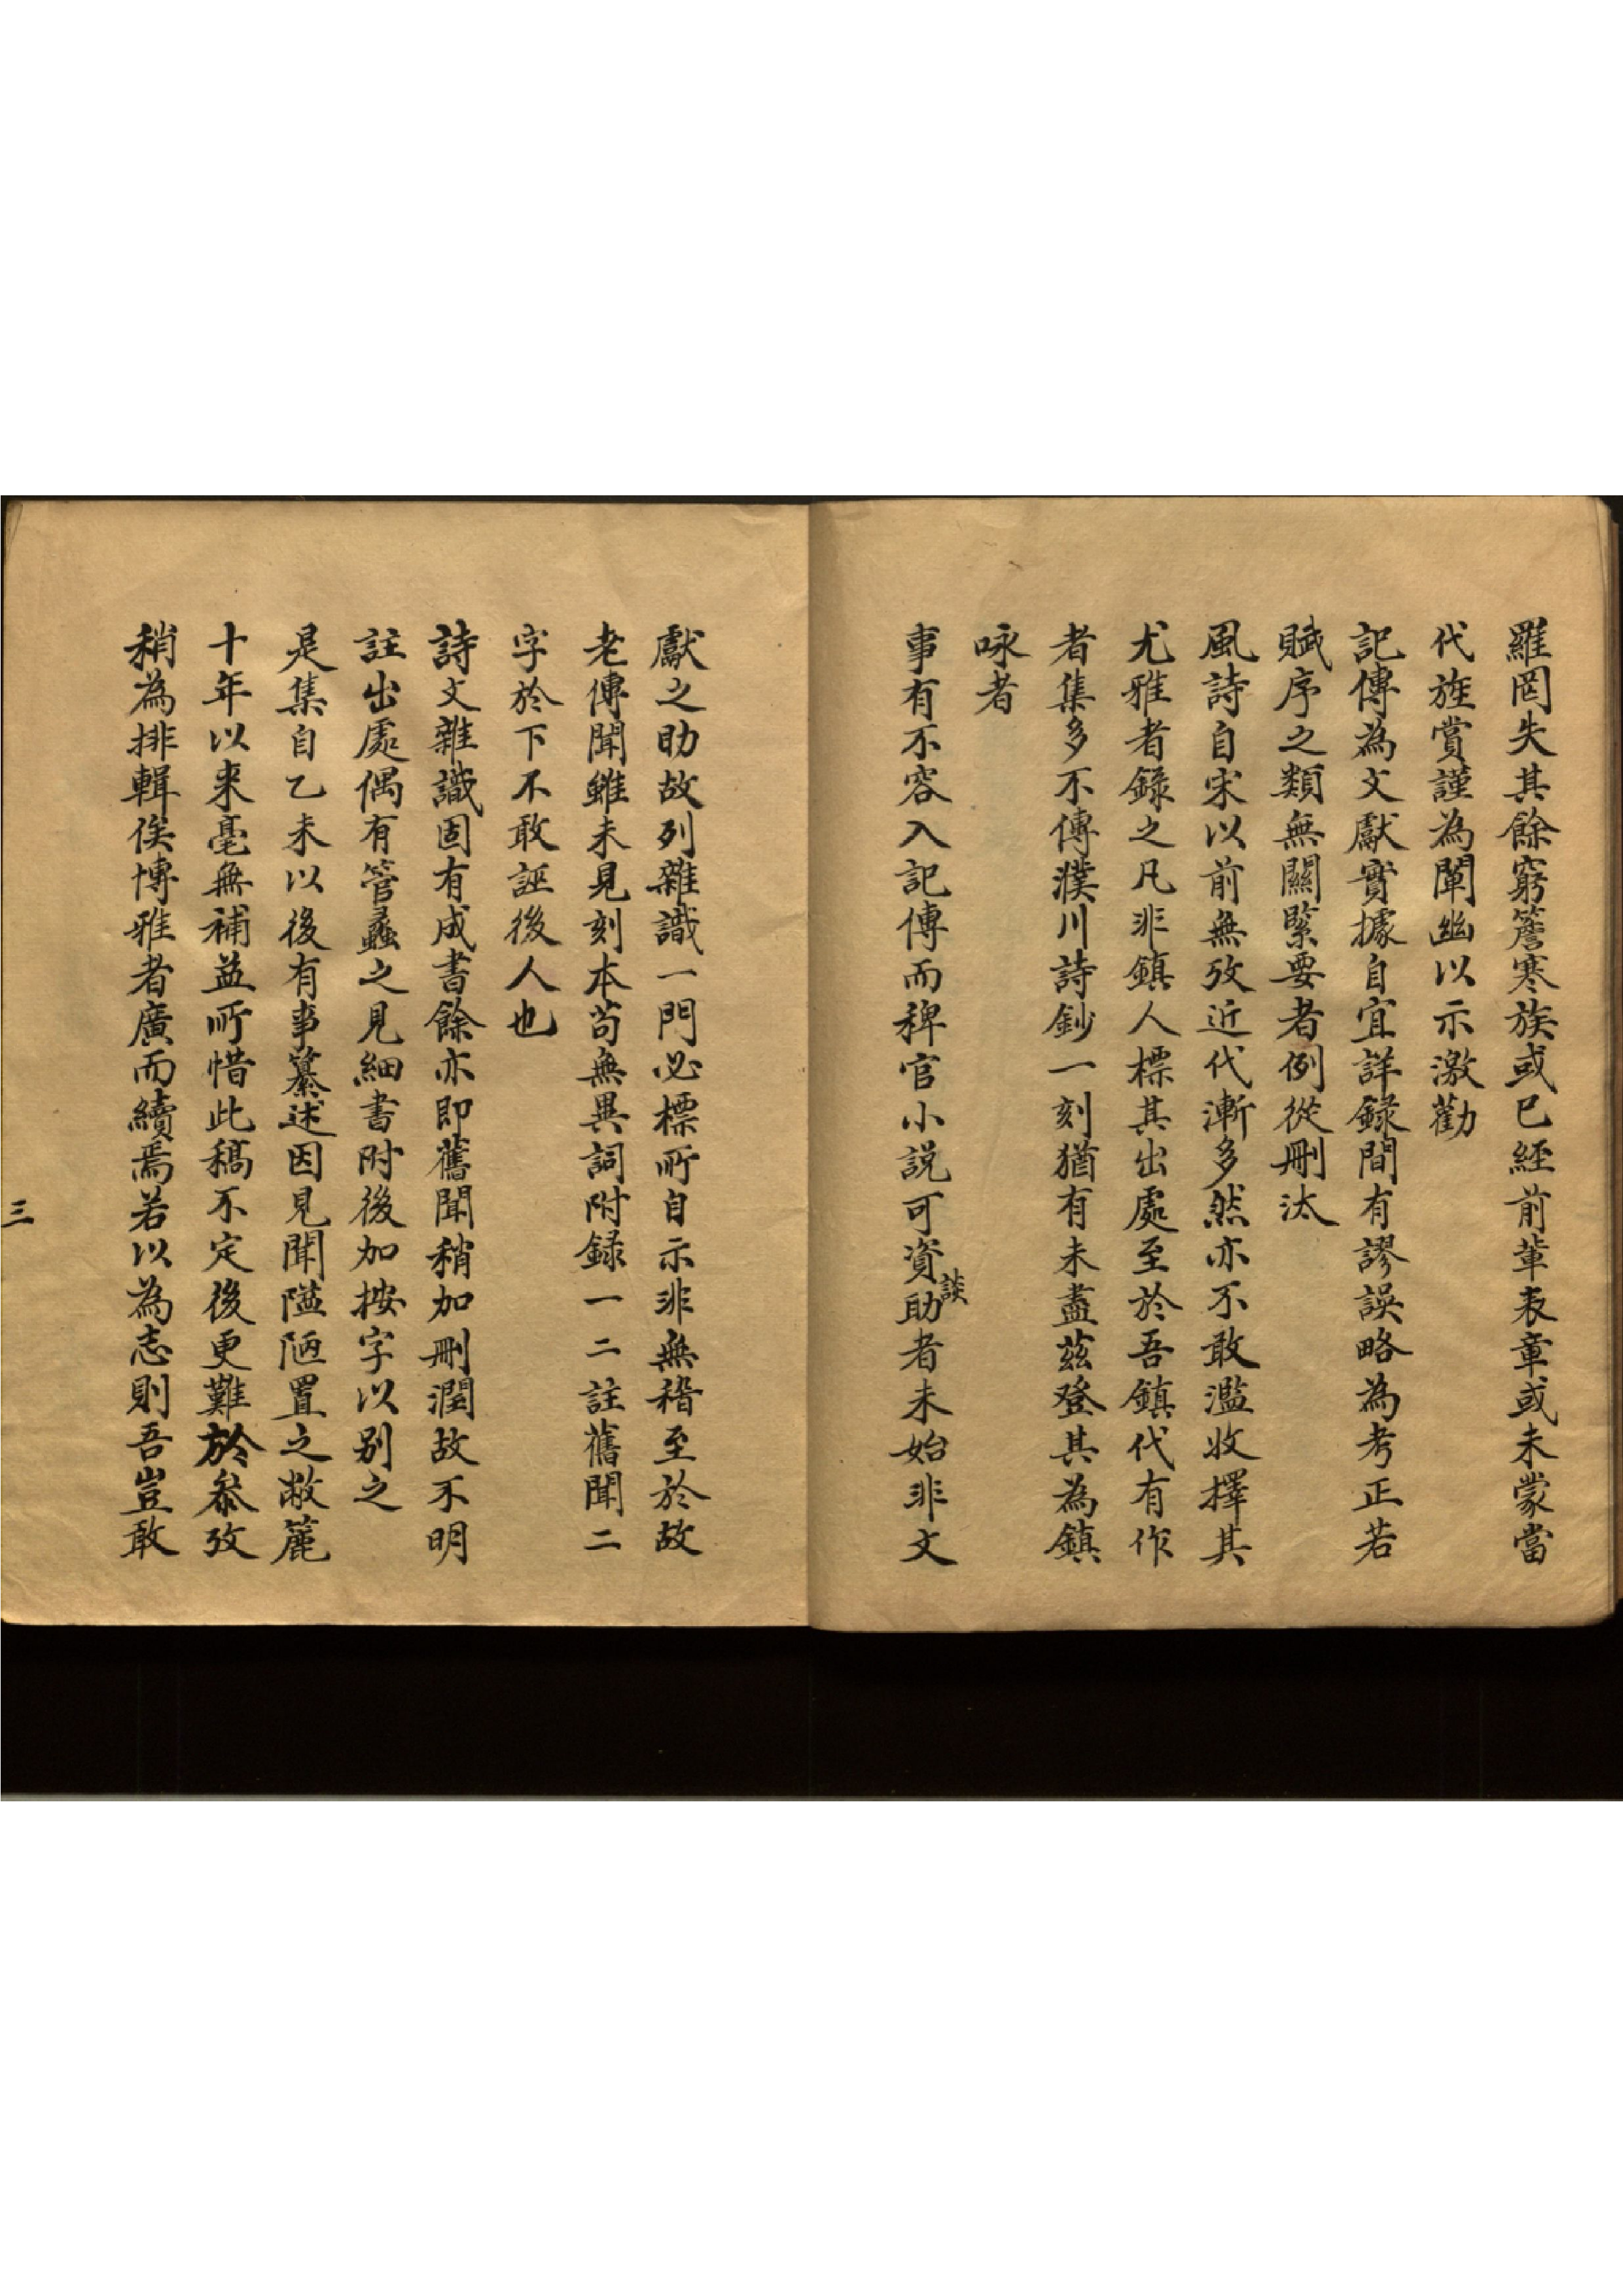 羅罔失其餘窮簷寒族或已經前輩表章或未蒙當
代旌賞謹為闡幽以示激勸
記傳為文獻實據自宜詳録間有謬誤略為考正若
賦序之類無關緊要者例從刪汰
風詩自宋以前無攷近代漸多然亦不敢濫收擇其
尤雅者錄之凡非鎮人標其出處至於吾鎮代有作
者集多不傳濮川詩鈔一刻猶有未盡茲登其為鎮
咏者
事有不容入記傳而稗官小説可資談助者未始非文
獻之助故列雜識一門必標所自示非無稽至於故
老傳聞雖未見刻本茍無異詞附録一二註舊聞二
字於下不敢誣後人也
詩文雜識固有成書餘亦即舊聞稍加刪潤故不明
註出處偶有管蠡之見細書附後加按字以别之
是集自乙未以後有事纂述因見聞隘陋置之敝簏
十年以来毫無補益所惜此稿不定後更難於叅攷
稍為排輯俟博雅者廣而續焉若以為志則吾豈敢
三